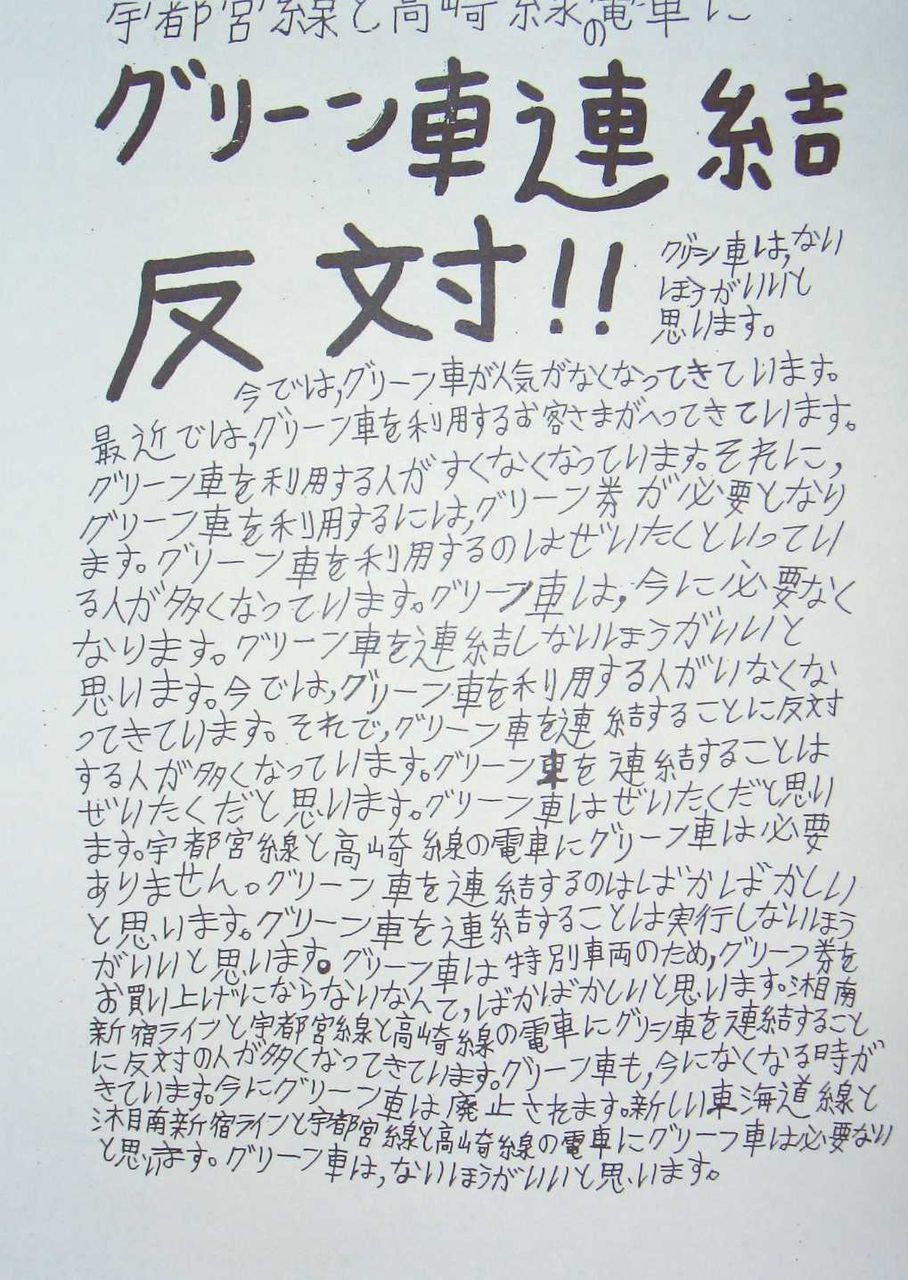 宇都宮線と高崎線の電車に
グリーン車連結
反対!!
グリーン車は,ない
ほうがいいと
思います。
今では,グリーン車が人気がなくなってきています。
最近では,グリーン車を利用するお客さまがへってきています。
グリーン車を利用する人がすくなくなっています。それに,
グリーン車を利用するには,グリーン券が必要となり
ます。グリーン車を利用するのはぜいたくといってい
る人が多くなっています。グリーン車は,今に必要なく
なります。グリーン車を連結しないほうがいいと
思います。今では,グリーン車を利用する人がいなくな
ってきています。それで,グリーン車を連結することに反対
する人が多くなっています。グリーン車を連結することは
ぜいたくだと思います。グリーン車はぜいたくだと思い
ます。宇都宮線と高崎線の電車にグリーン車は必要
ありません。グリーン車を連結するのはばかばかしい
と思います。グリーン車を連結することは実行しないほう
がいいと思います。グリーン車は特別車両のため,グリーン券を
お買い上げにならないなんて,ばかばかしいと思います。湘南
新宿ラインと宇都宮線と高崎線の電車にグリーン車を連結すること
に反対の人が多くなってきています。グリーン車も,今になくなる時が
きています。今にグリーン車は廃止されます。新しい東海道線と
湘南新宿ラインと宇都宮線と高崎線の電車にグリーン車は必要ない
と思います。グリーン車は,ないほうがいいと思います。